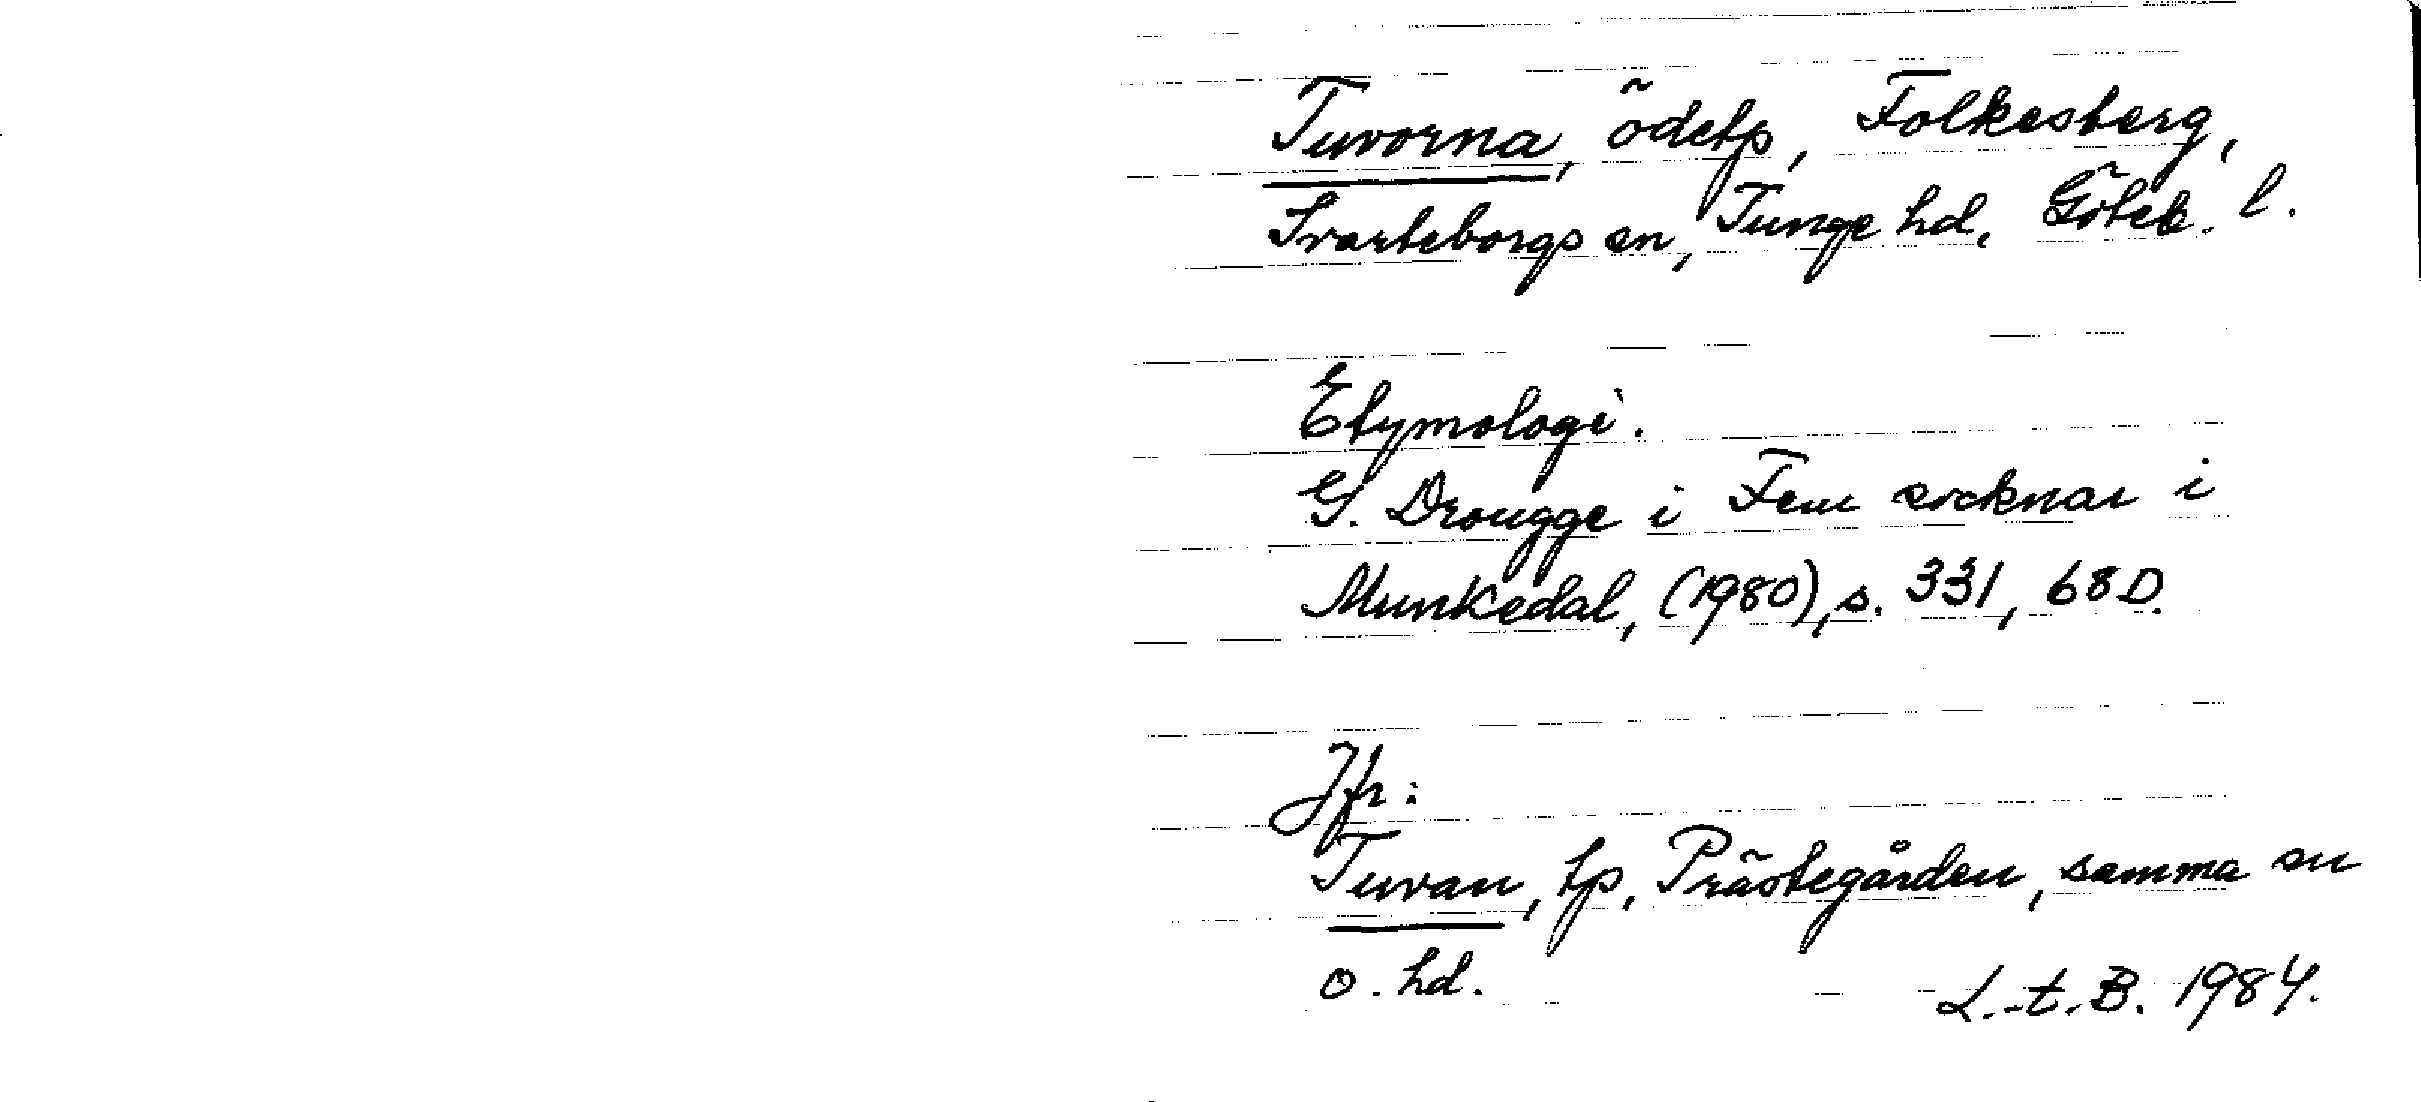 Tuvorna, ödetp, Folkesberg,
Svarteborgs sn, Tunge hd, Göteb. l.
Etymologi.
G. Drougge i Fem socknar i
Munkedal, (1980), s. 331, 68 D.
Jfr:
Tuvan, tp, Prästegården, samma sn
o. hd.
L.-t. B. 1984.